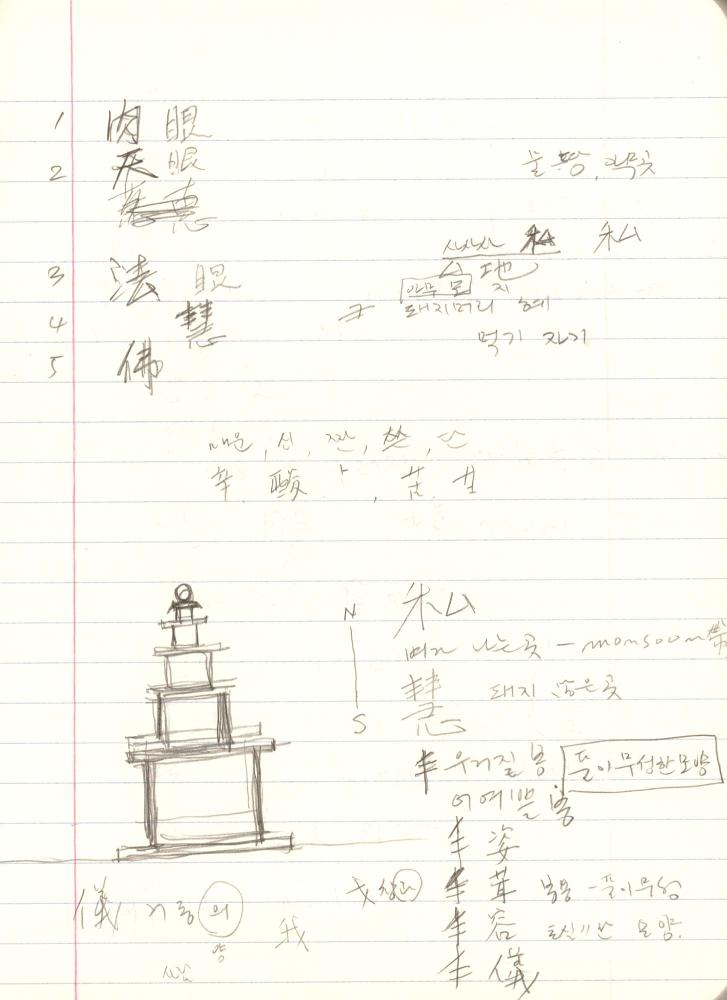 1 肉 眼
2 天 眼
慧
눌 짱, 아무곳
3 法 眼
4 慧
5 佛
사사사 私 私
厶 地
아무 모 지
ヲ 돼지머리 혜
먹기 자기
매운, 신, 짠, 쓴, 단
辛 酸 , 苦 甘
N
S
私
벼가 나는곳 - monsoon 帶
慧 돼지 않은곳
丰 우거질 봉 풀이무성한모양
어여쁠 봉
丰 姿
戈 창과 丰 茸 봉용 - 풀이무성
丰 容 토실토실한 모양.
丰 儀
儀 거동 의 我
양